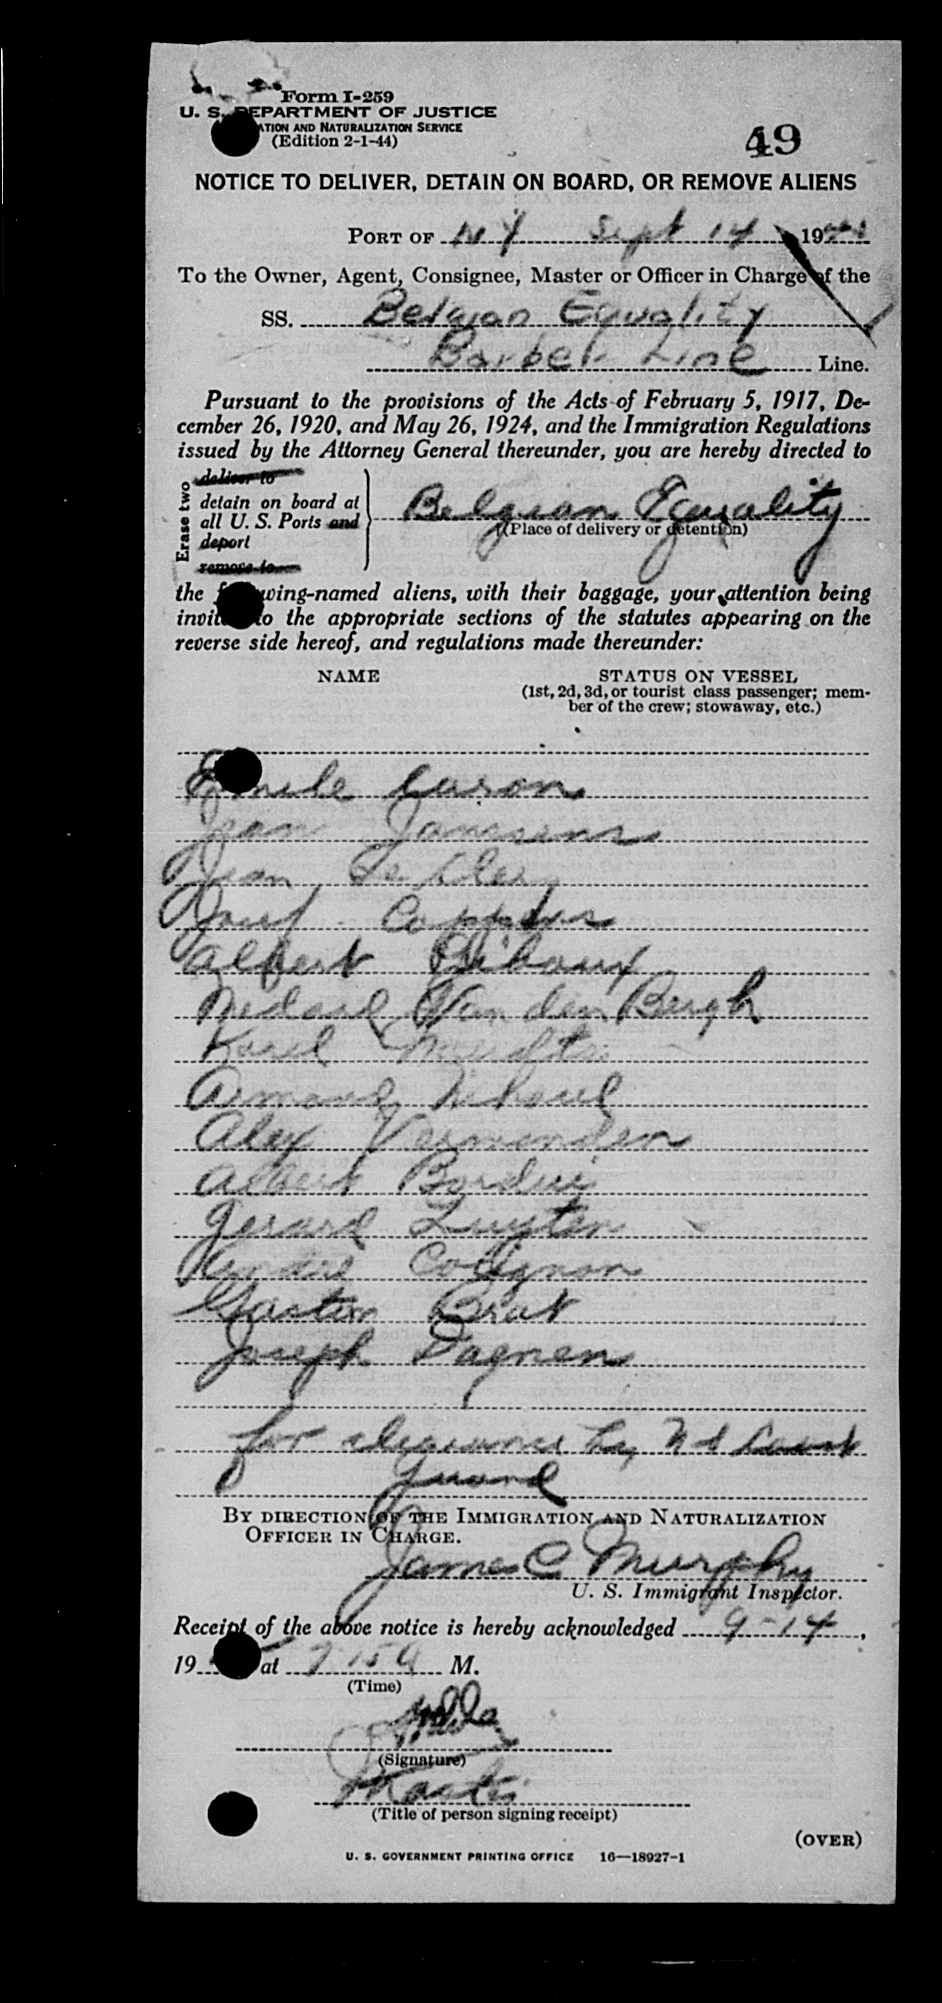 Form I-259
U. S. DEPARTMENT OF JUSTICE
ATION AND NATURALIZATION SERVICE
(Edition 2-1-44)
49
NOTICE TO DELIVER, DETAIN ON BOARD, OR REMOVE ALIENS
PORT OF NY Sept 14 1944
To the Owner, Agent, Consignee, Master or Officer in Charge of the
SS. Belgian Equality
Barber Line Line.
Pursuant to the provisions of the Acts of February 5, 1917, De-
cember 26, 1920, and May 26, 1924, and the Immigration Regulations
issued by the Attorney General thereunder, you are hereby directed to
Erase two
deliver to
detain on board at
all U. S. Ports and
deport
remove to
Belgian Equality
(Place of delivery or detention)
the following-named aliens, with their baggage, your attention being
invited to the appropriate sections of the statutes appearing on the
reverse side hereof, and regulations made thereunder:
NAME STATUS ON VESSEL
(1st, 2d, 3d, or tourist class passenger; mem-
ber of the crew; stowaway, etc.)
Emile Caron
Jean Janssens
Jean
Josef
Albert
Medard Van den Bergh
Karel
Armand
Alex
Albert
Gerard Luyten
Andre Colignon
Gaston Brat
Joseph Dagnen
for clearance by U S Coast
Guard
BY DIRECTION OF THE IMMIGRATION AND NATURALIZATION
OFFICER IN CHARGE.
James C Murphy
U. S. Immigrant Inspector.
Receipt of the above notice is hereby acknowledged 9-14,
19 at M.
(Time)
(Signature)
Master
(Title of person signing receipt)
(OVER)
U. S. GOVERNMENT PRINTING OFFICE 16—18927-1